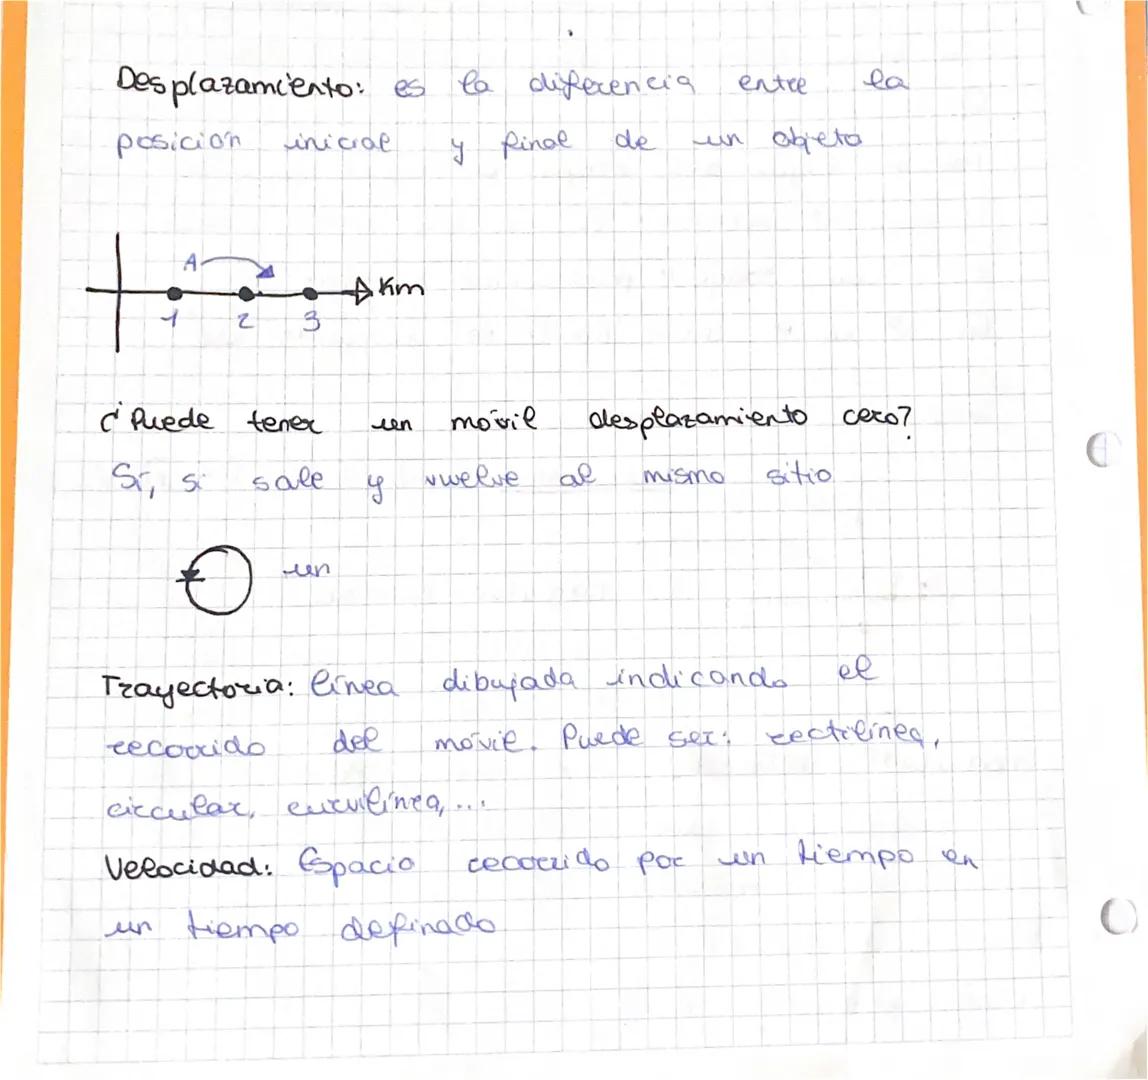 Desplazamiento: es la diferencia entre la
posición inicial y final de un objeto
A
Km
1 2 3
¿Puede tener un móvil desplazamiento cero?
Sí, si sale y vuelve al mismo sitio
un
Trayectoria: línea dibujada indicando el
recorrido del móvil. Puede ser: rectilínea,
circular, curvilínea, ...
Velocidad: Espacio recorrido por un tiempo en
un tiempo definado